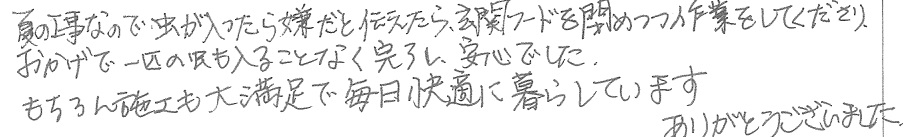 夏の工事なので虫が入ったら嫌だと伝えたら、玄関フードを閉めつつ作業をしてくださり、
おかげで一匹の虫も入ることなく完了し、安心でした。
もちろん施工も大満足で毎日快適に暮らしています
ありがとうございました。